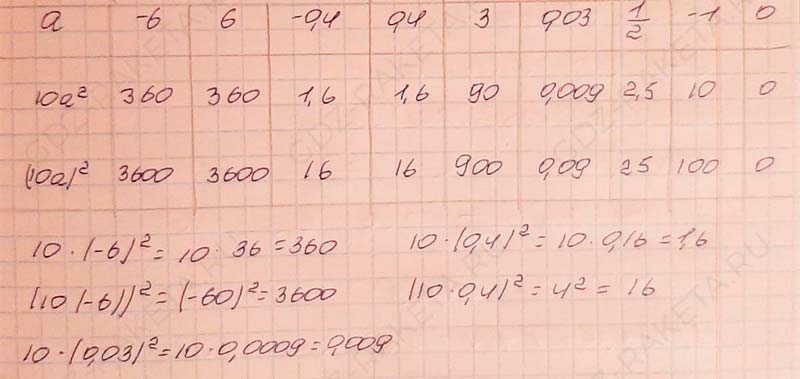 a -6 6 -0,4 0,4 3 0,03 1/2 -1 0
10a² 360 360 1,6 1,6 90 0,009 2,5 10 0
(10a)² 3600 3600 16 16 900 0,09 25 100 0
10·(-6)² = 10·36 = 360
10·(0,4)² = 10·0,16 = 1,6
(10(-6))² = (-60)² = 3600
(10·0,4)² = 4² = 16
10·(0,03)² = 10·0,0009 = 0,009